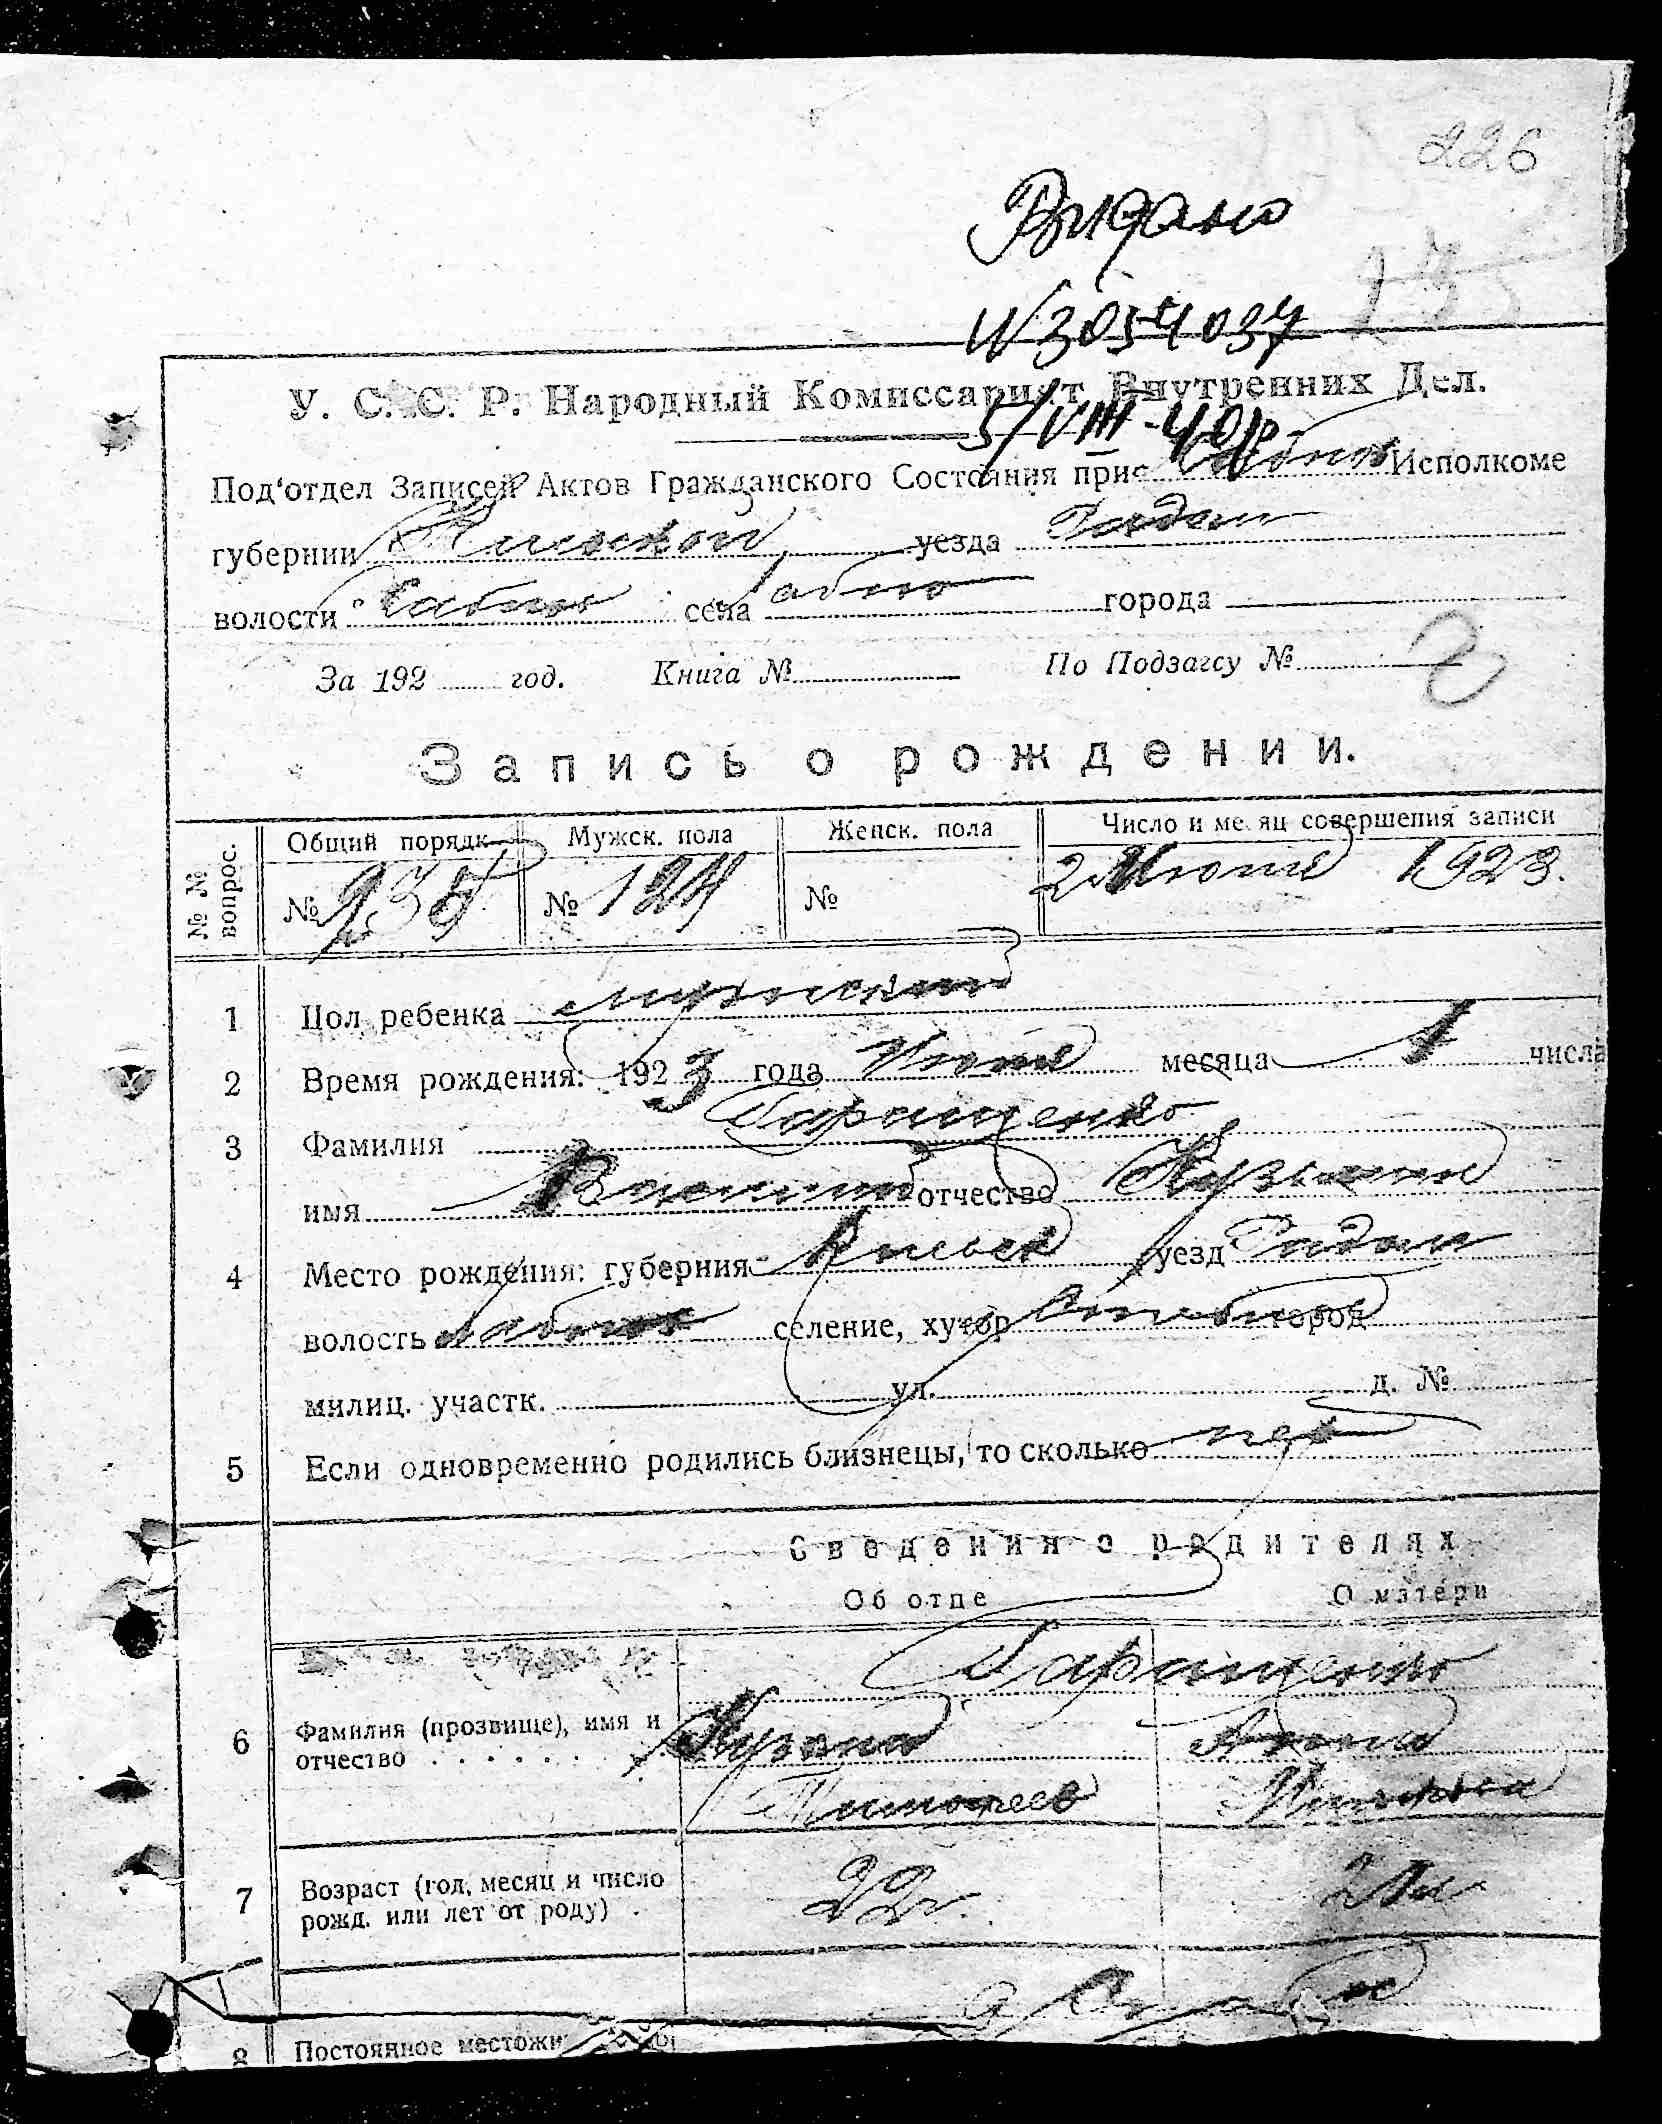 226
Выдано
№ 3054037
5/VIII-40 р.
У. С. С. Р. Народный Комиссариат Внутренних Дел.
Под'отдел Записей Актов Гражданского Состояния при Исполкоме
губернии Киевской уезда Радом
волости села города
За 192 год. Книга № По Подзагсу №
Запись о рождении.
№ № вопрос. Общий порядк. Мужск. пола Женск. пола Число и месяц совершения записи
№ 235 № 124 № 2 Июня 1923.
1 Пол ребенка мужский
2 Время рождения: 1923 года Июня месяца 1 числа
3 Фамилия Геращенко
имя Василий отчество Кузьмин
4 Место рождения: губерния Киевск уезд Радом
волость селение, хутор город
милиц. участк. ул. д. №
5 Если одновременно родились близнецы, то сколько нет
Сведения о родителях
Об отце О матери
Геращенко
6 Фамилия (прозвище), имя и отчество Кузьма Анна
Тимофеев
7 Возраст (год, месяц и число рожд. или лет от роду) 22 г. 21 г.
8 Постоянное местожи